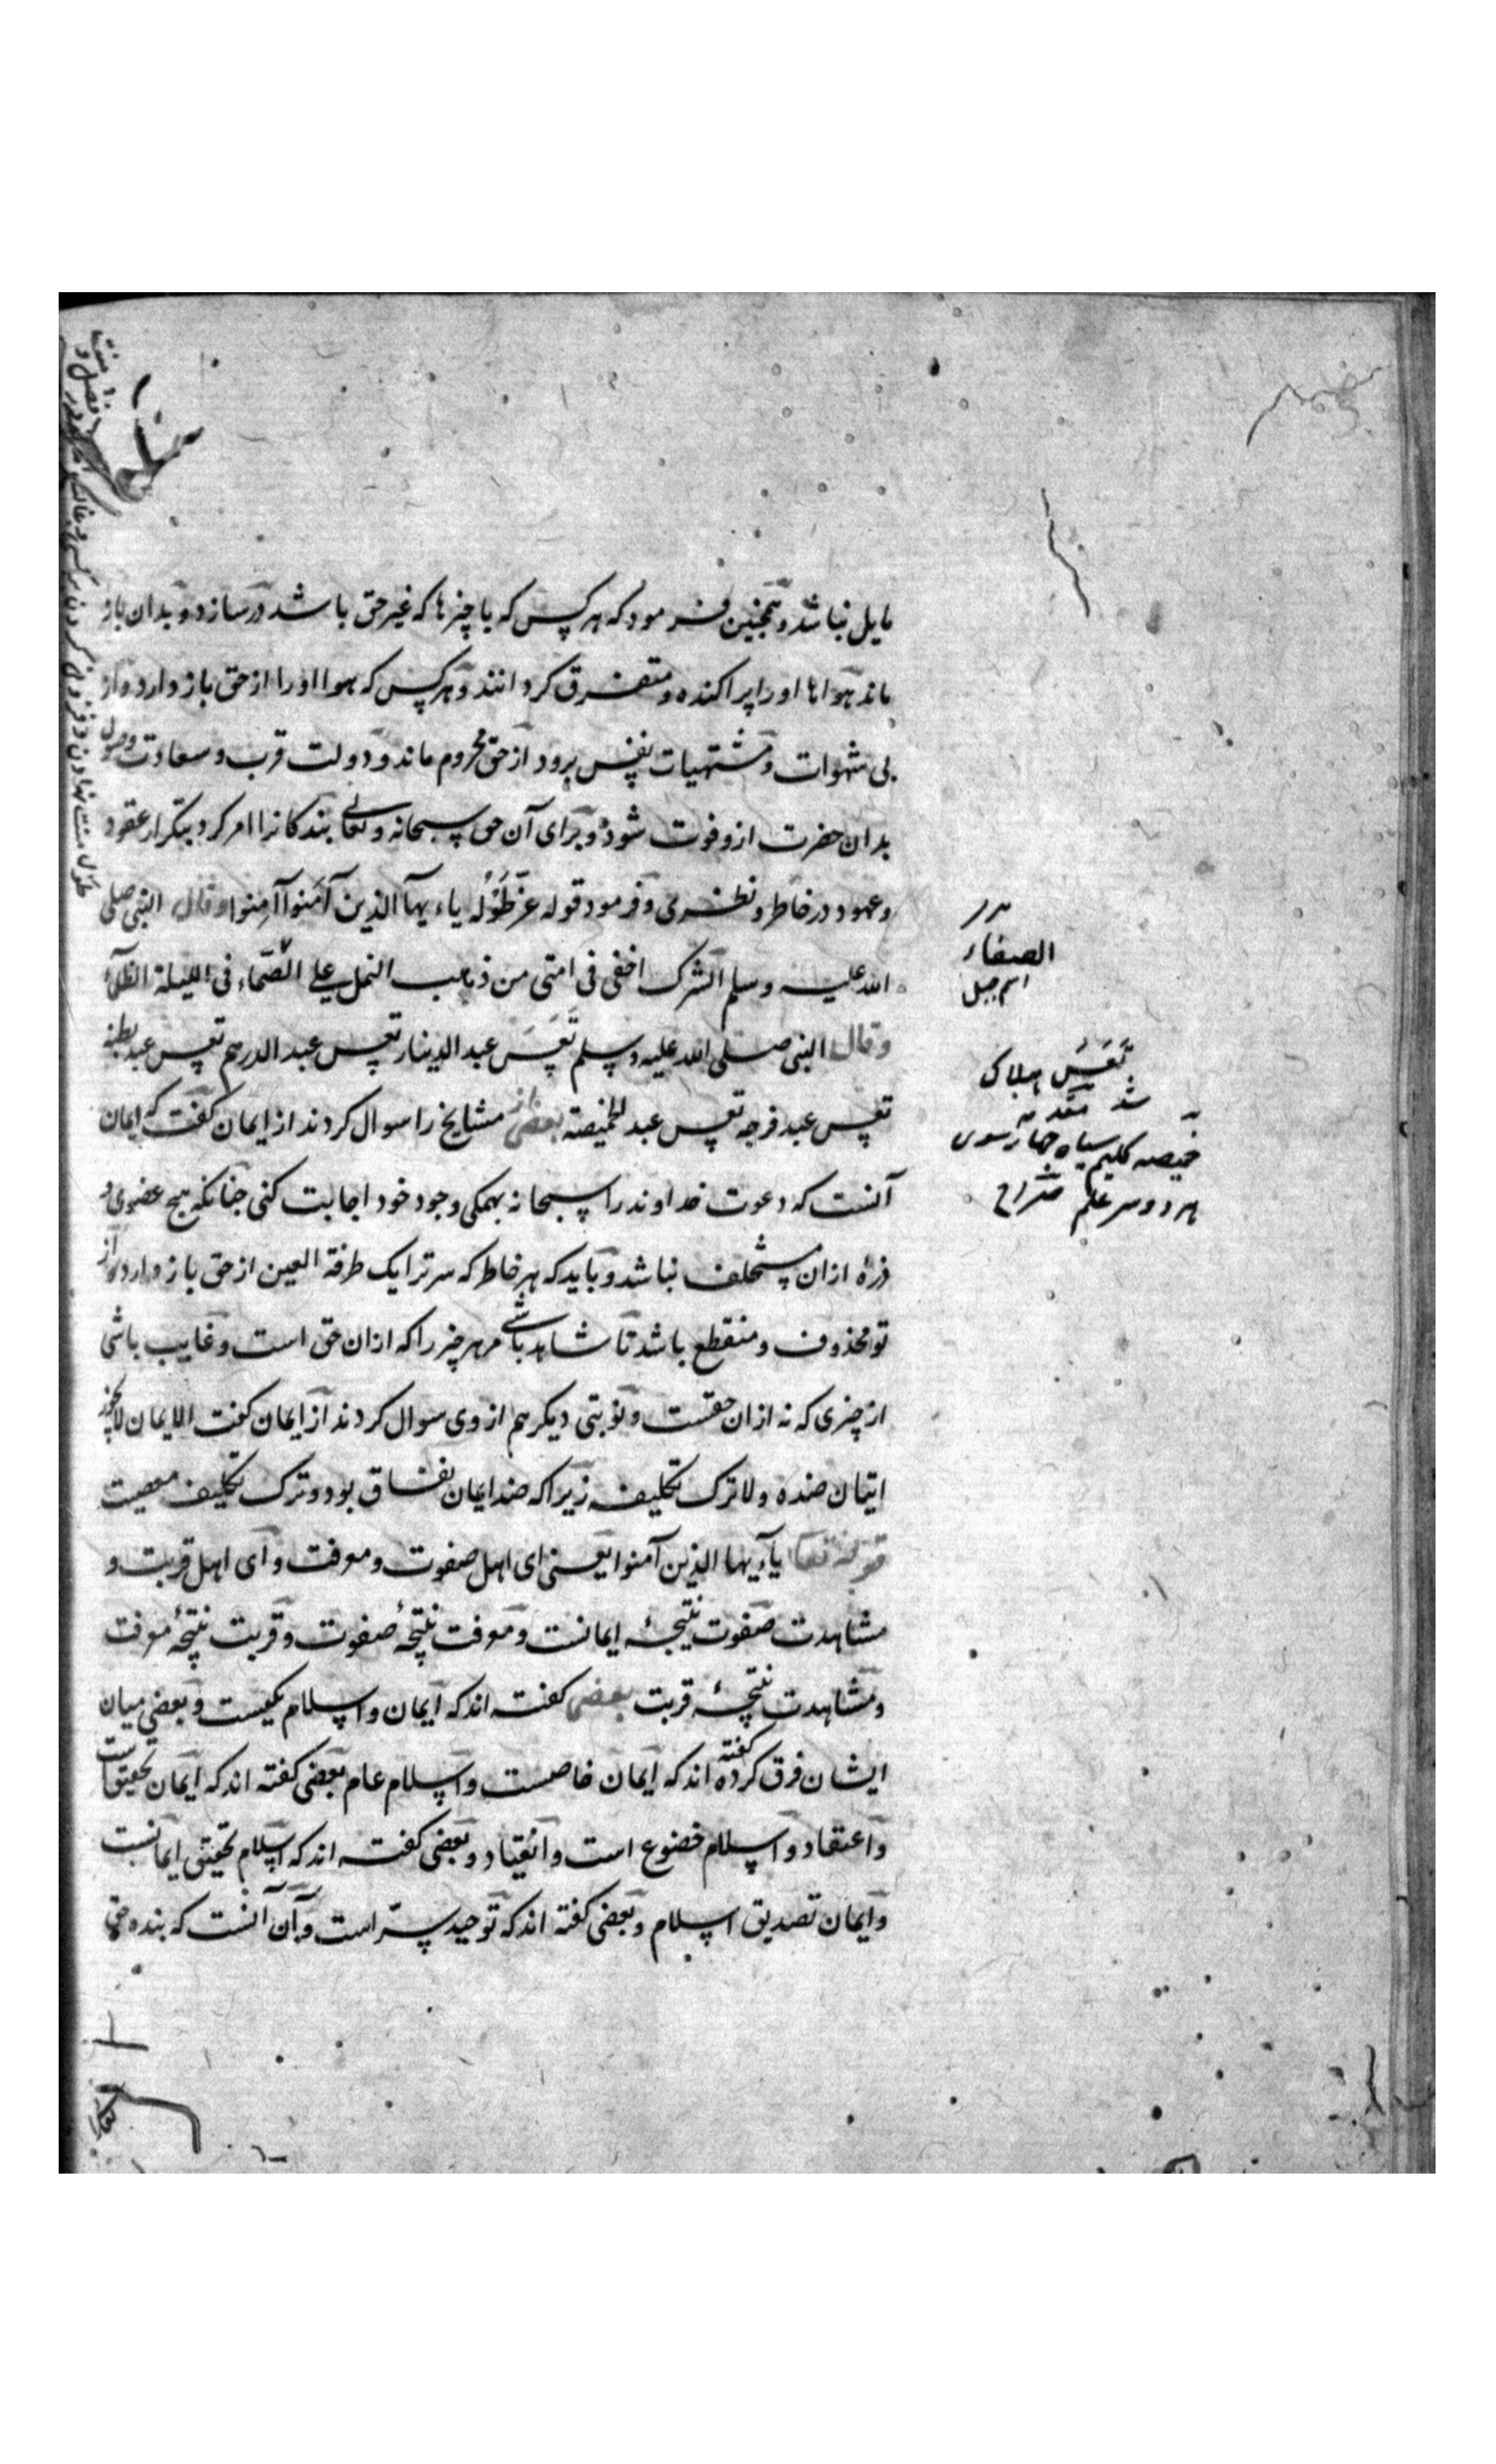 مایل نباشد و همچنین فرمود که هر کس که با چیزها که غیر حق باشد درسازد و بدان باز
ماند هواها او را پراکنده و متفرق کردانند و هر کس که هوا او را از حق باز دارد و از
پی شهوات و مشتهیات نفس برود از حق محروم ماند و دولت قرب و سعادت وصول
بدان حضرت ازو فوت شود و برای آن حق سبحانه و تعالی بندکانرا امر کرد بتکرار عقود
و عهود در خاطر و نظر و فرمود قوله عز یاءیها الذین آمنوا آمنوا وقال النبی صلی
الله علیه وسلم الشرک اخفی فی امتی من دبیب النمل علی الصماء فی اللیلة الظلماء
وقال النبی صلی الله علیه وسلم تعس عبد الدینار تعس عبد الدرهم تعس عبد بطنه
تعس عبد فرجه تعس عبد الخمیصة بعضی از مشایخ را سوال کردند از ایمان کفت که ایمان
آنست که دعوت خداوند را سبحانه بهمکی وجود خود اجابت کنی چنانکه هیچ عضوی و
ذرۀ ازان متخلف نباشد و باید که هر خاطر که سر ترا یک طرفة العین از حق باز دارد از
تو محذوف و منقطع باشد تا شاهد باشی مر هر چیز را که ازان حق است و غایب باشی
از چیزی که نه ازان حقست و نوبتی دیکر هم از وی سوال کردند از ایمان کفت الایمان لا یجوز
اتیان ضده ولا ترک تکلیفه زیرا که ضد ایمان نفاق بود و ترک تکلیف معصیت
قوله تعا یاءیها الذین آمنوا یعنی ای اهل صفوت و معرفت و ای اهل قربت و
مشاهدت صفوت نتیجۀ ایمانست و معرفت نتیجۀ صفوت و قربت نتیجۀ معرفت
و مشاهدت نتیجۀ قربت بعضی کفته اند که ایمان و اسلام یکیست و بعضی میان
ایشان فرق کرده کفته اند که ایمان خاصست و اسلام عام بعضی کفته اند که ایمان تحقیق است
و اعتقاد و اسلام خضوع است و انقیاد و بعضی کفته اند که اسلام تحقیق ایمانست
و ایمان تصدیق اسلام و بعضی کفته اند که توحید سرّ است و آن آنست که بنده حق
الصفاء
اسم جبل
تعس هلاک
شد
خمیصه کلیم سیاه چهارسوی
هر دو سر علم